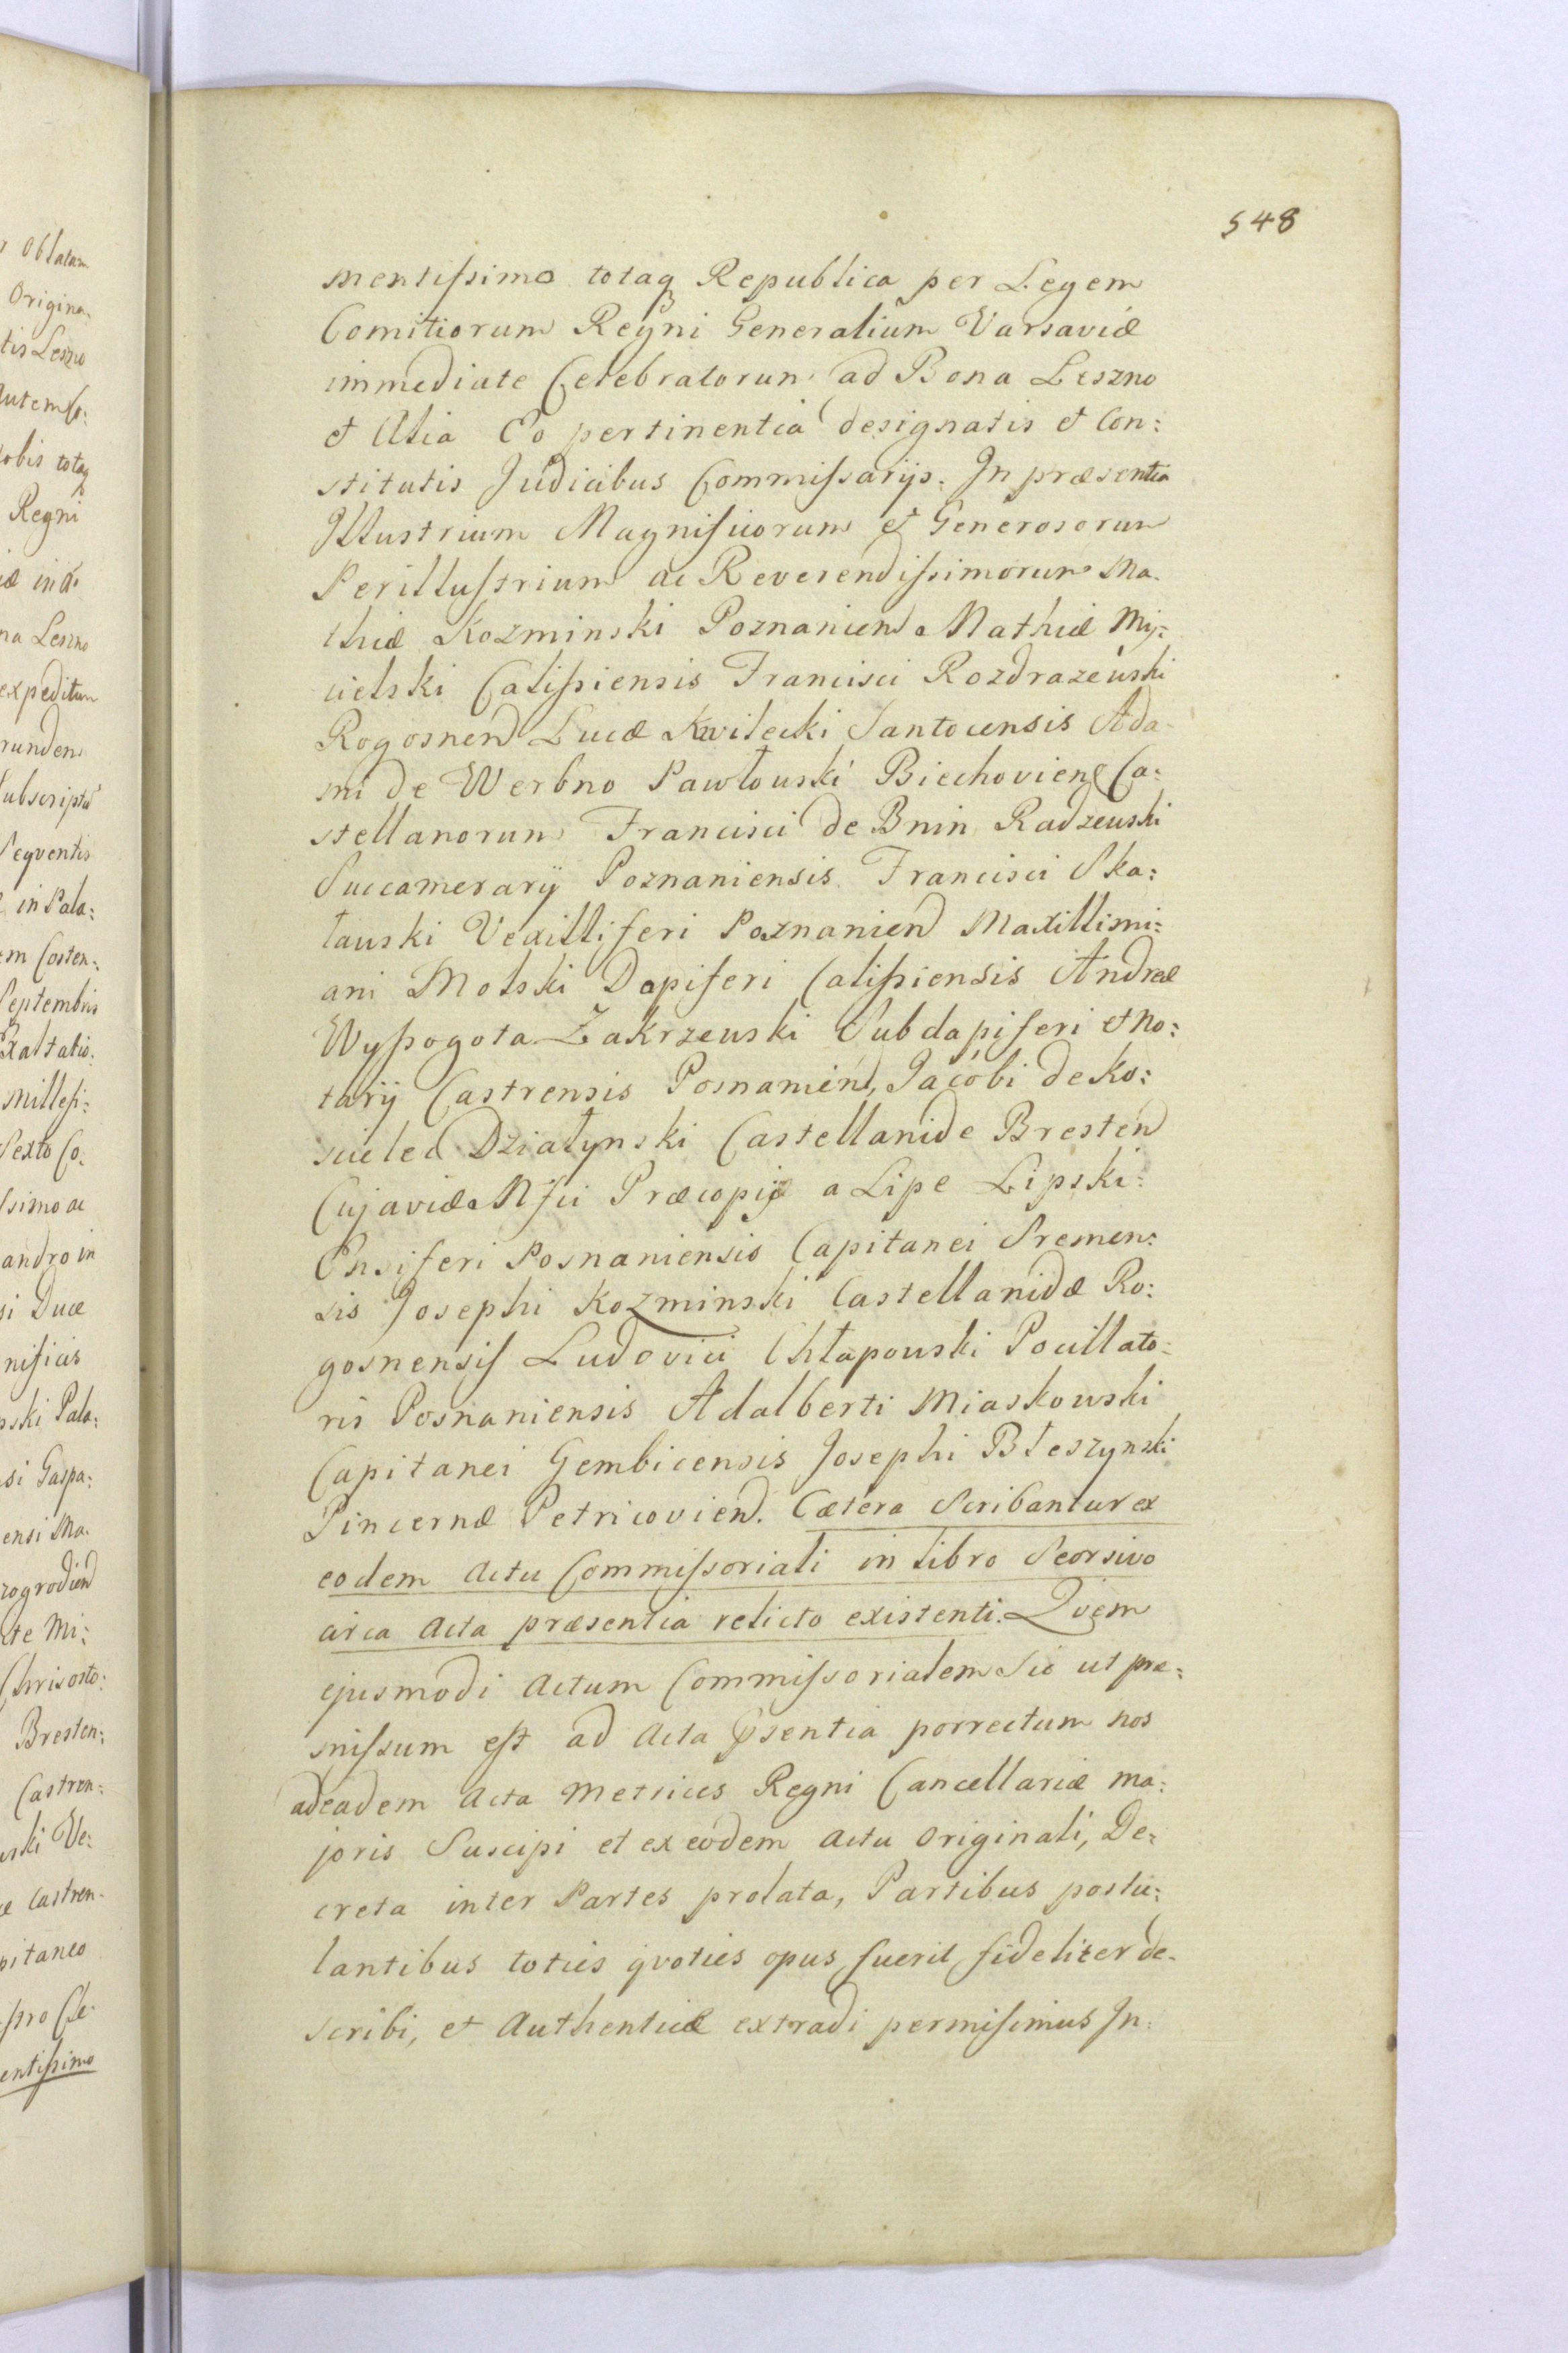 548
mentissimo totaq Republica per Legem
Comitiorum Regni Generalium Varsaviæ
immediate Celebratorum ad Bona Leszno
et Alia Eo pertinentia designatis et Con:
stitutis Judicibus Commissarijs. In præsentia
Illustrium Magnificorum et Generosorum
Perillustrium ac Reverendissimorum Ma.
thiæ Kozminski Poznanien Mathiæ My:
cielski Calissiensis Francisci Rozdrazewski
Rogosnen Lucæ Kwilecki Santocensis Ada-
mi de Werbno Pawłouski Biechovien Ca:
stellanorum Francisci de Bnin Radzeuski
Succamerarij Poznaniensis Francisci Ska:
łauski Vexilliferi Poznanien Maxillimi:
ani Molski Dapiferi Calissiensis Andreæ
Wyssogota Zakrzeuski Subdapiferi et No:
tarij Castrensis Posnanien, Jacobi de Ko:
scielec Działynski Castellanide Bresten
Cujaviæ Nsci Præcopij a Lipe Lipski:
Ensiferi Posnaniensis Capitanei Sremen:
sis Josephi Kozminski Castellanidæ Ro:
gosnensis Ludovici Chłapouski Pocillato:
ris Posnaniensis Adalberti Miaskouski
Capitanei Gembicensis Josephi Błeszynski
Pincernæ Petricovien. Cætera Scribantur ex
eodem Actu Commissoriali in libro Seorsivo
circa Acta præsentia relicto existenti. Qvem
ejusmodi Actum Commissorialem Sic ut præ:
missum est ad Acta psentia porrectum nos
ad eadem Acta Metrices Regni Cancellariæ ma:
joris Suscipi et ex eodem Actu Originali, De:
creta inter Partes prolata, Partibus postu:
lantibus toties qvoties opus fuerit fideliter de-
scribi, et Authenticæ extradi permisimus In: